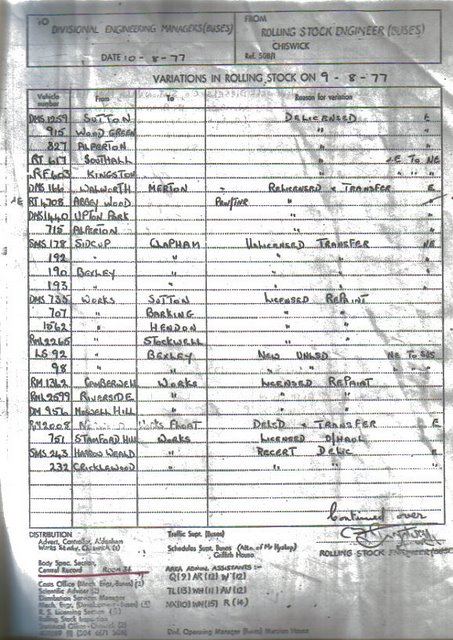 TO
DIVISIONAL ENGINEERING MANAGERS(BUSES)
DATE 10-8-77
FROM
ROLLING STOCK ENGINEER (BUSES)
CHISWICK
Ref. 508/1
VARIATIONS IN ROLLING STOCK ON 9-8-77
Vehicle number From To Reason for variation
DMS 1259 SUTTON DELICENSED E
915 WOOD GREEN " "
827 ALPERTON " "
RT 617 SOUTHALL " E TO NE
RF 603 KINGSTON " " " "
DMS 166 WALWORTH MERTON RELICENSED & TRANSFER E
NE RT 4708 ABBEY WOOD PEW/TNR " "
DMS 1440 UPTON PARK "
715 ALPERTON
SMS 178 SIDCUP CLAPHAM UNLICENSED TRANSFER NE
192 " " " " "
190 BEXLEY " " " "
193 " " " " "
DMS 735 WORKS SUTTON LICENSED REPAINT
707 " BARKING " "
1562 " HENDON " "
RML 2265 " STOCKWELL " "
LS 92 " BEXLEY NEW UNLSD NE TO SMS
98 " " " " " "
RM 1362 CAMBERWELL WORKS LICENSED REPAINT
RML 2599 RIVERSIDE " " "
DM 956 MUSWELL HILL " " "
2008 WORKS FLOAT DELSD & TRANSFER E
751 STAMFORD HILL WORKS LICENSED O/HAUL
SMS 243 HARROW WEALD " RECERT DELIC E
232 CRICKLEWOOD " " " "
Continued over
ROLLING STOCK ENGINEER (BUSES)
DISTRIBUTION
Advert. Controller, Aldenham
Works Ready, Chiswick
Body Spec. Section,
Central Record ROOM 34
Costs Office (Mech. Engr, Buses) (2)
Scientific Adviser
Distribution Services Manager
Mech. Engr. (Development-Buses)
R. S. Licensing Section
Rolling Stock Inspection
Traffic Supt. (Buses)
Schedules Supt. Buses (Attn. of Mr Hyslop)
Griffith House
AREA ADMN. ASSISTANTS :-
Q(9) AR(12) W(12)
TL(13) WH(11) AV(12)
NX(10) WN(15) R(14)
Div. Operating Manager (Buses) Mansion House